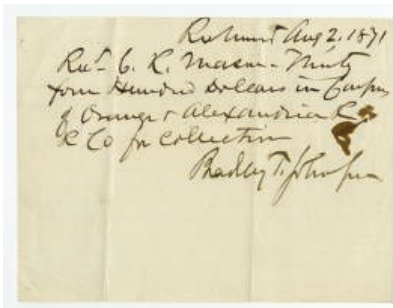 Richmond Aug 2. 1871
Recd C. R. Mason - Ninty
four Hundred Dollars in Coupons
of Orange & Alexandria R.
R Co for Collection
Bradley T. Johnson